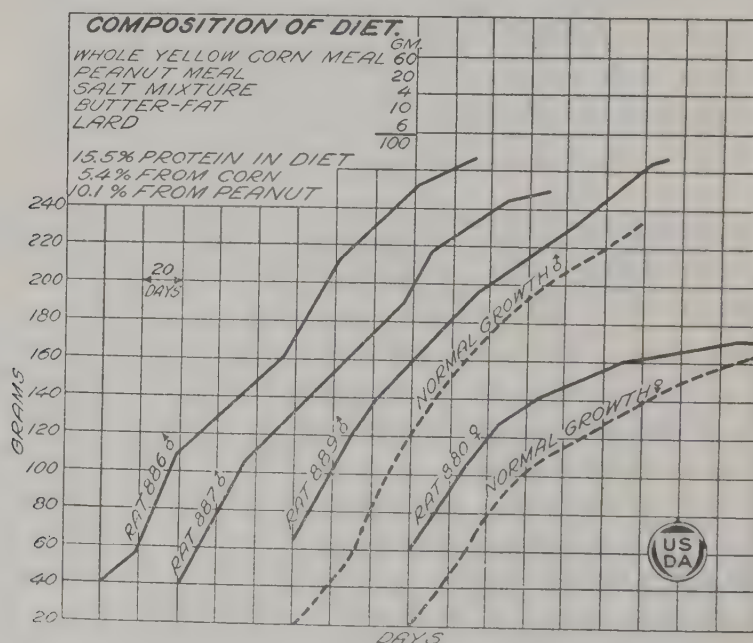 COMPOSITION OF DIET.
GM.
WHOLE YELLOW CORN MEAL 60
PEANUT MEAL 20
SALT MIXTURE 4
BUTTER-FAT 10
LARD 6
100
15.5% PROTEIN IN DIET
5.4% FROM CORN
10.1% FROM PEANUT
240
220
200
180
160
140
120
100
80
60
40
20
GRAMS
20
DAYS
RAT 886♂
RAT 887♂
RAT 889♂
NORMAL GROWTH♂
RAT 880♀
NORMAL GROWTH♀
US
DA
DAYS